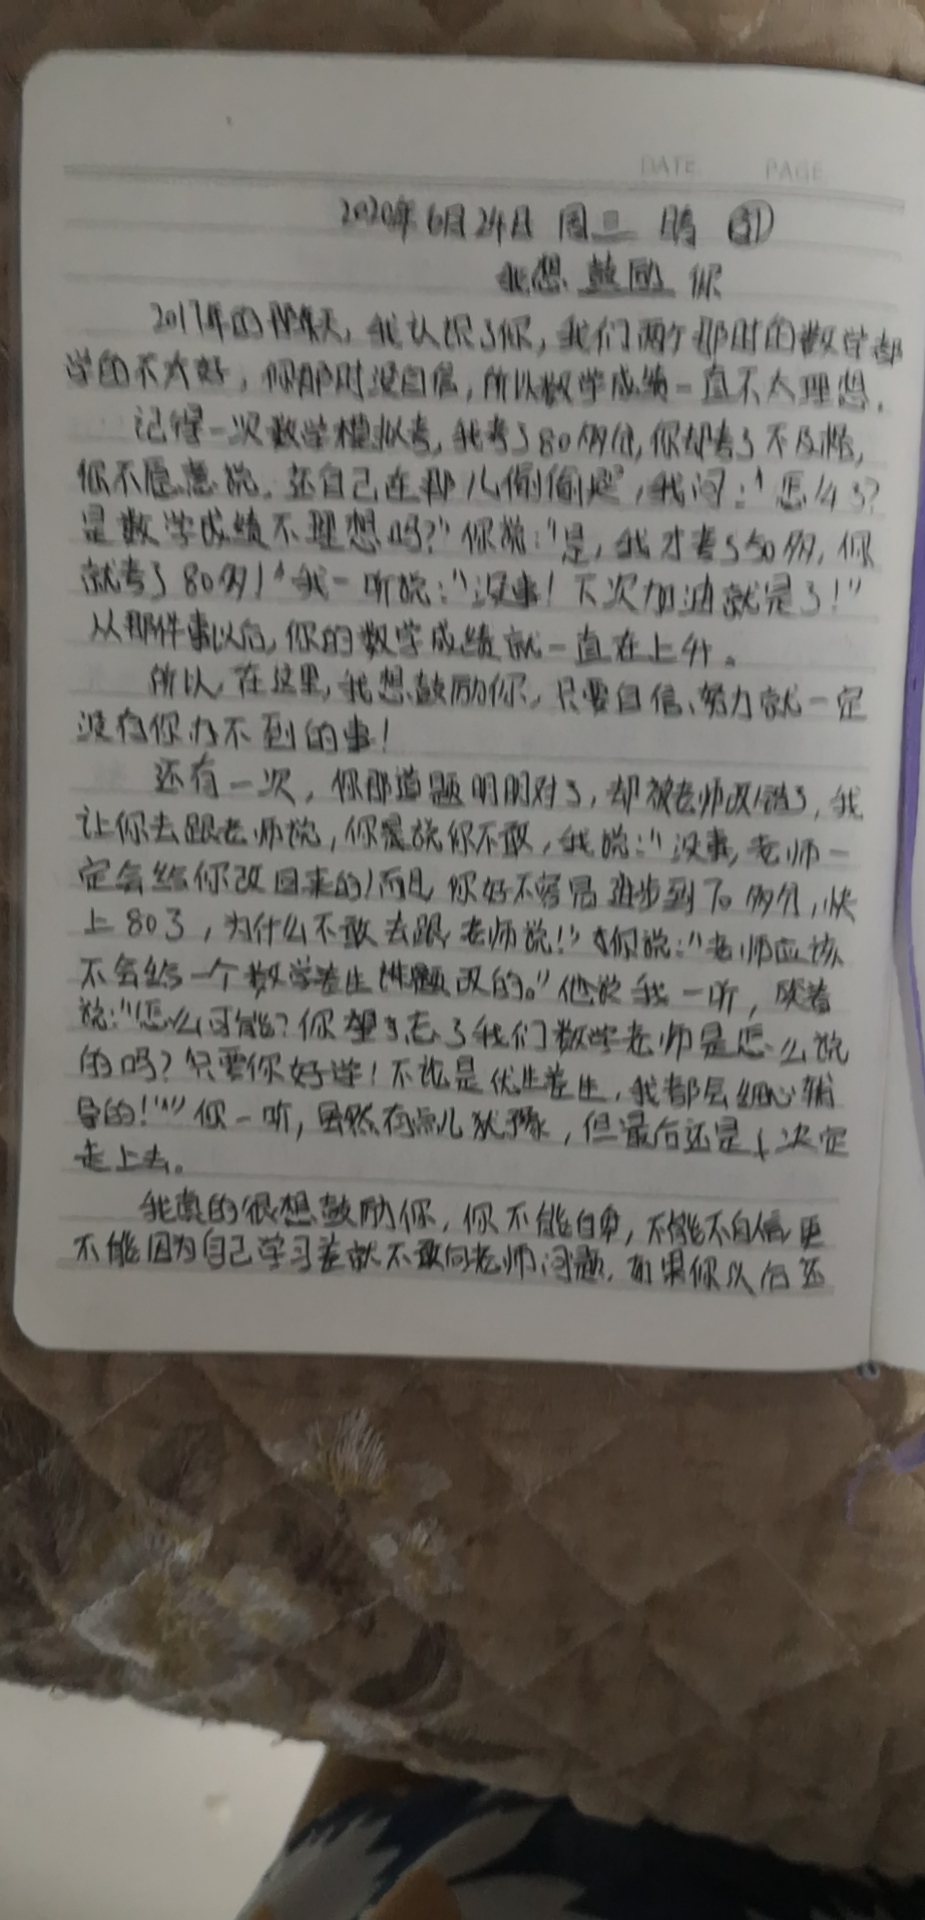 DATE PAGE
2020年6月24日 周三 晴 31
我想 鼓励 你
2017年的那天,我认识了你,我们两个那时的数学都
学的不太好,你那时没自信,所以数学成绩一直不太理想。
记得一次数学模拟考,我考了80多分,你却考了不及格,
你不愿意说,还自己在那儿偷偷哭,我问:"怎么了?
是数学成绩不理想吗?"你说:"是,我才考了50多,你
就考了80多!"我一听说:"没事!下次加油就是了!"
从那件事以后,你的数学成绩就一直在上升。
所以,在这里,我想鼓励你,只要自信、努力就一定
没有你办不到的事!
还有一次,你那道题明明对了,却被老师改错了,我
让你去跟老师说,你说你不敢,我说:"没事,老师一
定会给你改回来的!而且你好不容易进步到70多分,快
上80了,为什么不敢去跟老师说!"你说:"老师应该
不会给一个数学差生 题改的。"我一听,笑着
说:"怎么可能?你忘了我们数学老师是怎么说
的吗?只要你好学!不论是优生差生,我都会细心辅
导的!""你一听,虽然有点儿犹豫,但最后还是决定
走上去。
我真的很想鼓励你,你不能自卑,不能不自信,更
不能因为自己学习差就不敢向老师问题,如果你以后还